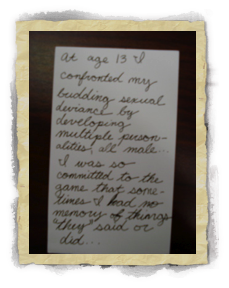 At age 13 I
confronted my
budding sexual
deviance by
developing
multiple person-
alities, all male...
I was so
committed to the
game that some-
times I had no
memory of things
"they" said or
did...